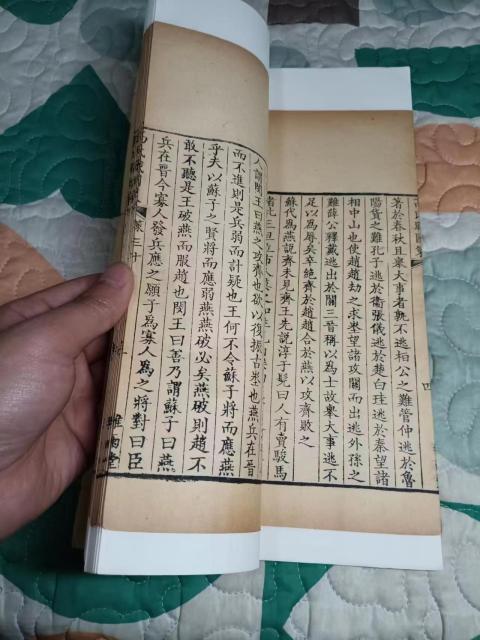 著於春秋且舉大事者孰不逃桓公之難管仲逃於魯
陽貨之難孔子逃於衛張儀逃於楚白珪逃於秦望諸
相中山也使趙趙劫之求埊望諸攻關而出逃外孫之
難薛公釋戴逃出於關三晉稱以為士故舉大事逃不
足以為辱矣卒絕齊於趙趙合於燕以攻齊敗之
蘇代為燕說齊未見齊王先說淳于髡曰人有賣駿馬
者比三旦立市人莫之知
人謂閔王曰燕之攻齊也欲以復振古埊也燕兵在晉
而不進則是兵弱而計疑也王何不令蘇子將而應燕
乎夫以蘇子之賢將而應弱燕燕破必矣燕破則趙不
敢不聽是王破燕而服趙也閔王曰善乃謂蘇子曰燕
兵在晉今寡人發兵應之願子為寡人為之將對曰臣
卷三十
雅雨堂